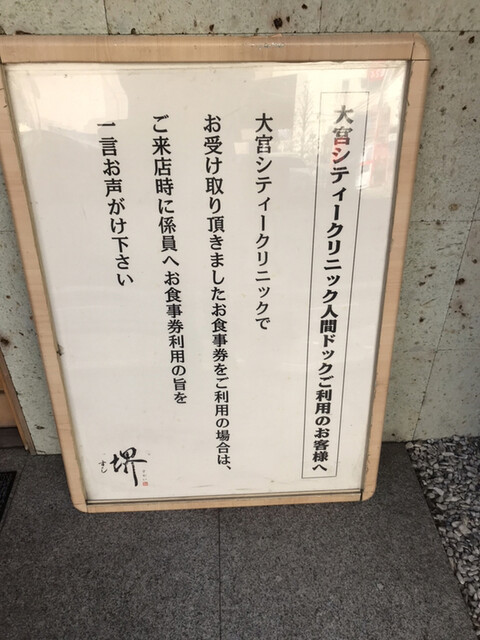 大宮シティークリニック人間ドックご利用のお客様へ
大宮シティークリニックで
お受け取り頂きましたお食事券をご利用の場合は、
ご来店時に係員へお食事券利用の旨を
一言お声がけ下さい
すし
堺